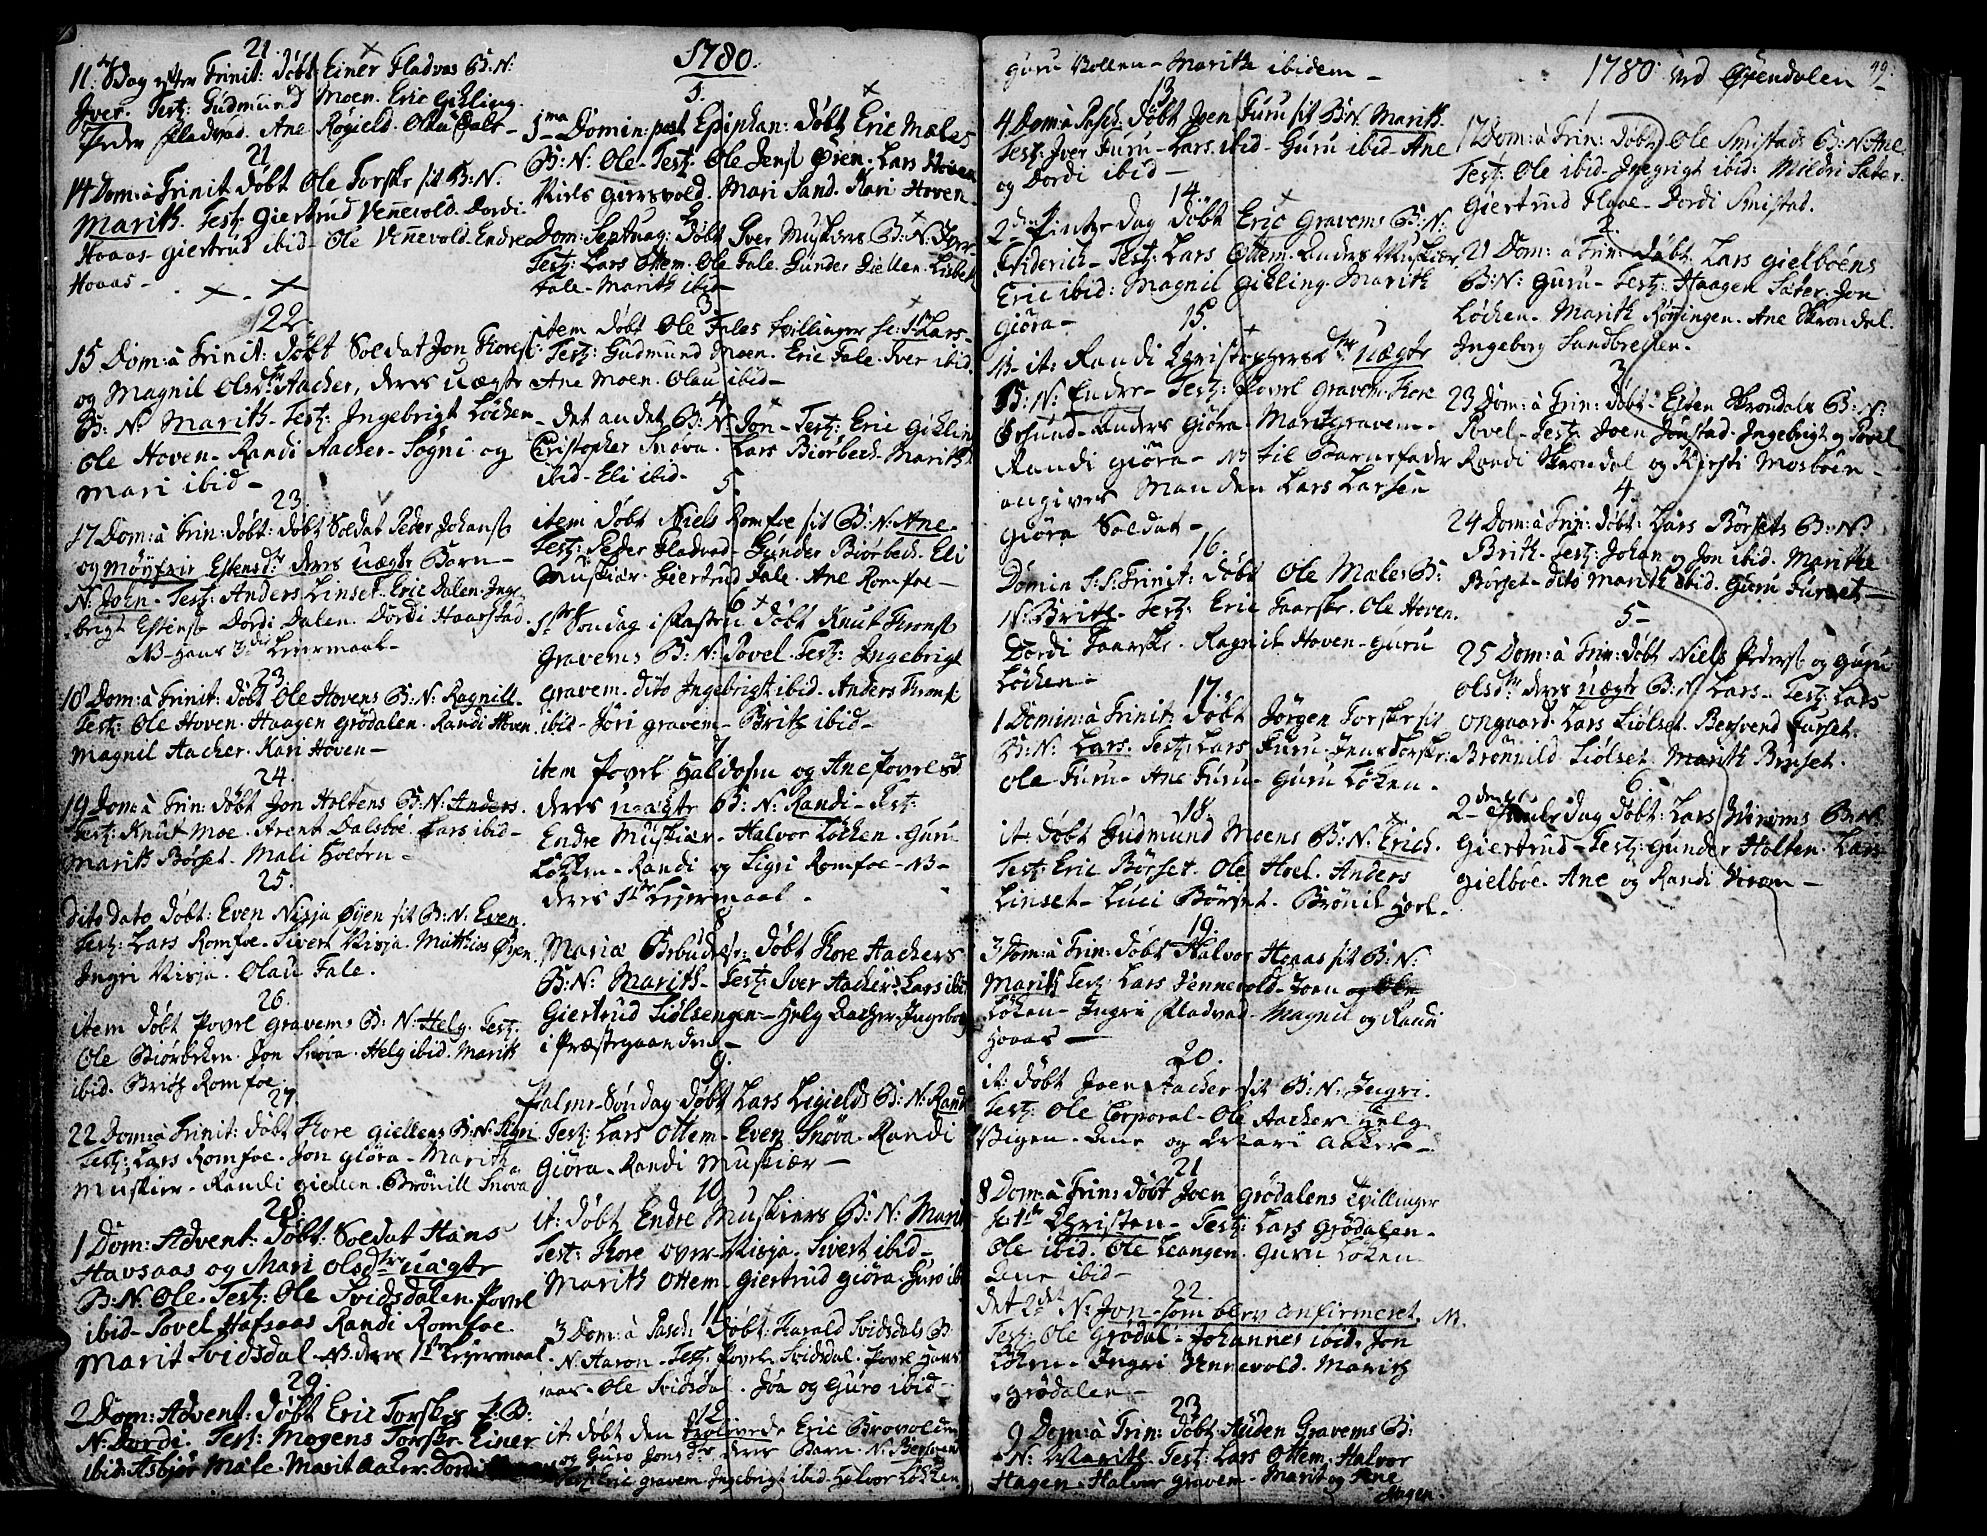 21.
11. S Dag efter Trinit: døbt Einer Fladvas B: N:
Iver. Test: Gudmund Moen. Eric Gikling.
Peder Fladvad. Ane Rogield. Olau Fale -
21
14 Dom: à Trinit. døbt Ole Torske sit B: N.
Marith. Test: Giertrud Vennevold. Dordi
Hoaas - giertrud ibid - Ole Vennevold. Endre
Hoaas -
22
15 Dom: à Trinit: døbt Soldat Jon Thores:
og Magnil Olsdtr Aacher, deres uægte
B: N: Marith - Test: Ingebrigt Løchen
Ole Hoven - Randi Aacher - Sogni og
Mari ibid -
23
17 Dom: à Trin: døbt: døbt Soldat Peder Johans:
og Møyfrie Estensdr: deres uægte Barn -
N: Joen - Test: Anders Linset. Eric Dalen. Inge-
brigt Estens: Dordi Dalen. Dordi Haarstad.
NB - hans 3die Leiermaal -
23.
18 Dom: à Trinit: døbt Ole Hovens B: N: Ragnill.
Test: Ole Hoven - Haagen Grødalen. Randi Hoven
Magnil Aacher. Kari Hoven -
24.
19 Dom: à Trin: døbt Jon Holtens B: N: Anders.
Test: Knut Moe. Arent Dalsboe. Lars ibid -
Marith Børset. Mali
25.
Dito dato døbt: Even Nisja Øyen sit B: N: Even.
Test: Lars Romfoe. Sivert Nisja. Mathias Øyen.
Ingri Nisja. Olau Fale.
26.
item døbt Povel Gravems B: N: Helg. Test:
Ole Biørbeken. Jon Snøva. Helg ibid. Marith
ibid. Brith Romfoe.
27
22 Dom: à Trinit: døbt Thore Giellens B: N: Sigri
Test: Lars Romfoe. Jon Giøra. Marith
Muskier - Randi Giellen. Brønill Snøva
28.
1 Dom: Advent: døbt: Soldat Hans
Havsaas og Mari Olsdtr uægte
B: N: Ole. Test: Ole Svidsdalen. Povel
ibid - Povel Hafsaas Randi Romfoe.
Marit Svidsdal - NB deres 1ste Leiermaal.
29.
2 Dom: Advent: døbt Eric Torskes P: B:
N: Dordi. Test: Mogens Torske Einer
ibid. Asbjør Mæle. Marit Aaker. Dordi
1780.
1.
1ma Domin: post Epiphan: døbt Eric Mæles
B: N: Ole - Test: Ole Jens: Øien. Lars Hoven
Niels Giersvold. Mari Sand. Kari Hoven -
Dom: Septuag: døbt Iver Muskiers B: N:
Test: Lars Ottem. Ole Fale. Gunder Giellen. Lisbet
Fale - Marith ibid -
3
item døbt Ole Fales tvillinger se: 1ste Lars -
Test: Gudmund Moen. Eric Fale. Iver ibid
Ane Moen. Olau ibid -
4
- det andet B: N: Jon - Test: Eric Gikling
Christopher Snøva. Lars Biørbech. Marith
ibid - Eli ibid -
5.
item døbt Niels Romfoe sit B: N: Ane.
Test: Peder Fladvad - Gunder Biørbech. Eli
Muskier. Giertrud Fale. Ane Romfoe -
6
1ste Søndag i Fasten døbt Knut Thoms:
Gravems B: N: Povel. Test: Ingebrigt
Gravem. dito Ingebrigt ibid. Anders Thoms:
ibid - Jøri Gravem - Brith ibid -
7
item Povel Haldosen og Ane Povelsd
deres uægte B: N: Randi - Test:
Endre Muskier - Halvor Løchen. Guru
Løkken - Randi og Sigri Romfoe - NB -
deres 1ste Leiermaal.
8
Mariæ Bebudelse: døbt Thore Aachers
B: N: Marith - Test: Iver Aacher: Lars ibid
Giertrud Siølsengen - Helg Aacher. Ingeborg
i Præstegaarden -
9.
Palme-Søndag døbt Lars Ligields B: N: Randi
Test: Lars Ottem - Even Snøva - Randi
Giøra - Randi Muskiær -
10
it: døbt Endre Muskiers B: N: Marit
Test: Thore over-Nisja. Sivert ibid -
Marith Ottem - Giertrud Giøra. Guro ibid
11.
3 Dom: à Pasch: døbt: Harald Svidsdals B:
N: Aaron - Test: Povel Svidsdal. Povel Hafs-
aas - Ole Svidsdal. Jøa og Guro ibid -
12
it: døbt den trolovede Eric Brovolden
og Guro Jonsdr deres Barn - N:
Test: Eric Gravem. Ingebrigt ibid. Halvor Løkken
Guru Bollen - Marith ibidem -
13.
4 Dom: à Pasch. døbt Joen Furu sit B: N: Marith.
Test: Iver Furu - Lars ibid - Guru ibid - Ane
og Dordi ibid -
14.
2den Pintze Dag døbt Eric Gravems B: N:
Friderich - Test: Lars Ottem. Anders Muskier
Eric ibid: Magnil Gikling. Marith
Giøra -
15.
NB - it: Randi Christophersdtr uægte
B: N: Endre - Test: Povel Gravem. Thore
Ørsund - Anders Giøra - Marit Gravem -
Randi Giøra - NB til Barnefader
angives Manden Lars Larsen
Giøra Soldat -
16.
Domin S: S: Trinit: døbt Ole Mæles B:
N: Brith - Test: Eric Faarske. Ole Hoven.
Dordi Faarske. Ragnil Hoven - Guru
Løchen -
17.
1 Domin: à Trinit: døbt Jørgen Torske sit
B: N: Lars. Test: Lars Furu. Jens Torske.
Ole Furu - Ane Furu - Guru Løken.
18.
it: døbt Gudmund Moens B: N: Erich.
Test: Eric Børset. Ole Hoel. Anders
Linset - Luci Børset. Brønil Hoel -
19.
3 Dom: à Trin: døbt Halvor Hoaas sit B: N:
Marith Test: Lars Vennevold - Joen
Løken - Ingri Fladvad - Magnil og Randi
Hoaas -
20.
it: døbt Joen Aacher sit B: N: Ingri.
Test: Ole Corporal - Ole Aacher. Helg
Vigen. Ane og Mari Aaker -
21
8 Dom: à Trin: døbt Joen Grødalens Tvillinger
se: 1ste Christen - Test: Lars Grødalen -
Ole ibid. Ole Leangen. Guru Løken
Ane ibid -
22.
det 2det N: Jon - som blev Confirmeret. M.
Test: Ole Grødal - Johannes ibid. Jon
Løken - Ingri Vennevold. Marith
Grødalen -
23
9 Dom: à Trin: døbt Auden Gravems B:
N: Marith. Test: Lars Ottem. Halvor
Hagen. Halvor Gravem - Marit og Ane
Hagen.
1780. ved Øxendalen 99.
1
17 Dom: à Trin: døbt Ole Smistads B: N: Ane
Test: Ole ibid - Ingerigt ibid: Mildri Sæter.
Giertrud Flaae - Dordi Smistat.
2.
21 Dom: à Trin: døbt Lars Gielbøens
B: N: Guru - Test: Haagen Sæter. Jon
Løchen. Marith Røningen. Ane Skrondal.
Ingeborg Sandbrecken.
3
23 Dom: à Trin: døbt - Esten Skrondals B: N:
Povel - Test: Joen Jønstad. Ingebrigt og Povel
Randi Skrondal og Kirsti Mosbøen -
4
24 Dom: à Trin: døbt: Lars Børsets B: N:
Brith - Test: Johan og Jon ibid. Marithe
Børset - dito Marith ibid. Guru Furset -
5 -
25 Dom: à Trin: døbt Niels Peders: og Guru
Olsdtr deres uægte B: N: Lars - Test: Lars
Ongaard. Lars Siølset. Bersvend Furset.
Brønnild Siølset. Marith Børset.
6.
2den Juule Dag døbt: Lars Veroms B: N:
Giertrud - Test: Gunder Holten. Lars
Gielboe. Ane og Randi Verom -